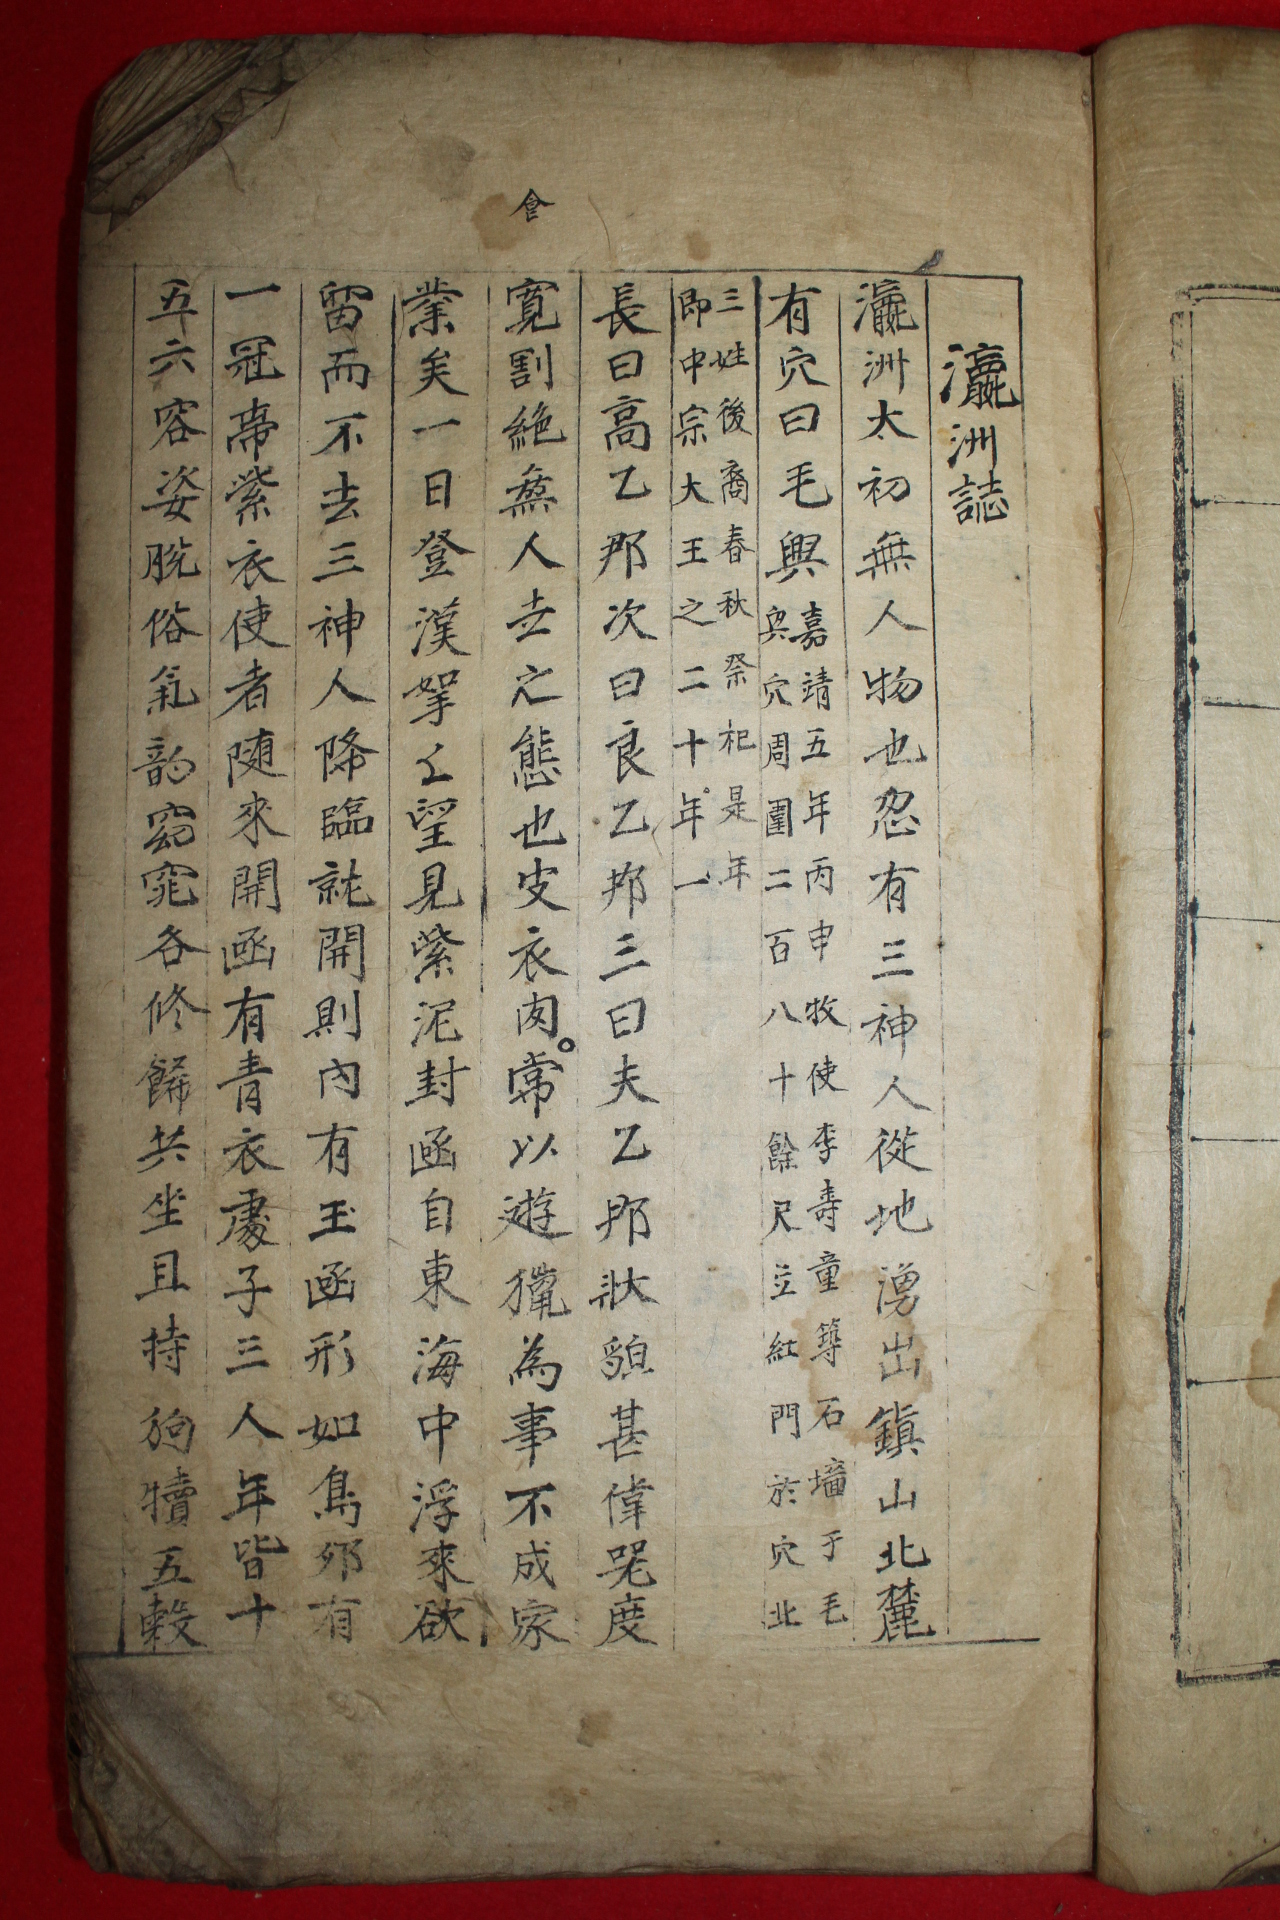 瀛洲誌
瀛洲太初無人物也忽有三神人從地湧出鎭山北麓
有穴曰毛興
嘉靖五年丙申牧使李壽童築石墻于毛
興穴周圍二百八十餘尺立紅門於穴北
三姓後裔春秋祭祀是年
即中宗大王之二十年一
長曰高乙那次曰良乙那三曰夫乙那狀貌甚偉器度
寬割絶無人世之態也皮衣肉常以遊獵為事不成家
食
業矣一日登漢拏山望見紫泥封函自東海中浮來欲
留而不去三神人降臨就開則內有玉函形如鳥卵有
一冠帶紫衣使者随來開函有青衣處子三人年皆十
五六容姿脫俗氣韵窈窕各修餙共坐且持狗犢五穀